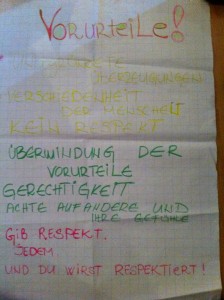 VORURTEILE!
KONKRETE
ÜBERZEUGUNGEN
VERSCHIEDENHEIT
DER MENSCHEN
KEIN RESPEKT
ÜBERWINDUNG DER
VORURTEILE
GERECHTIGKEIT
ACHTE AUF ANDERE UND
IHRE GEFÜHLE
GIB RESPEKT.
JEDEM
UND DU WIRST RESPEKTIERT!